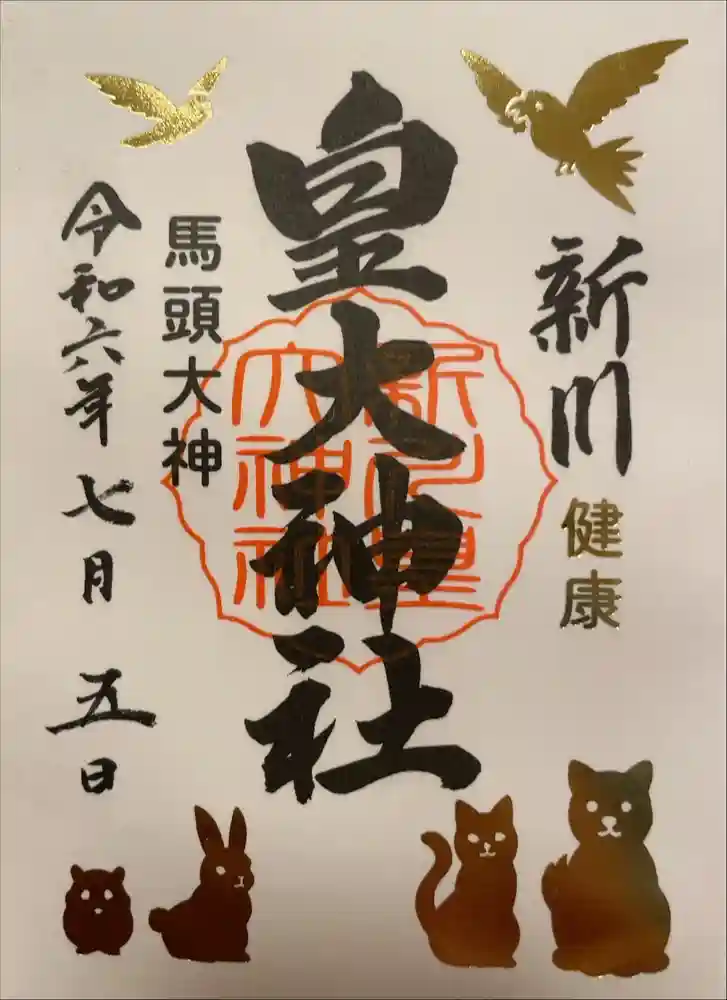 新川
健康
皇大神社
新川皇
大神社
馬頭大神
令和六年七月五日